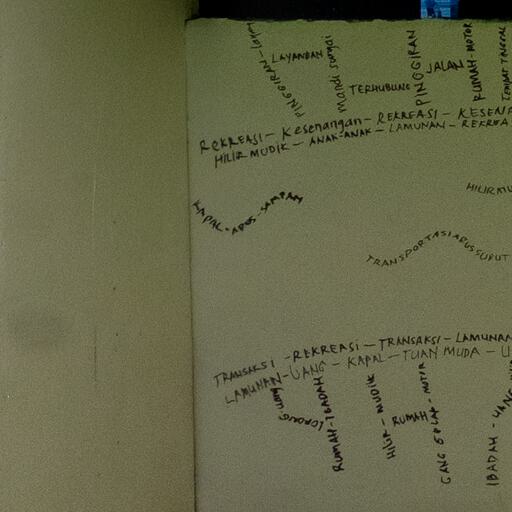 PINGGIRAN
LAYANGAN
mandi sungai
TERHUBUNG
PINGGIRAN
JALAN
RUMAH-MOTOR
REKREASI - Kesenangan - REKREASI - KESENA
HILIR MUDIK - ANAK-ANAK - LAMUNAN - REKREA
HILIR MU
KAPAL - ARUS - SAMPAN
TRANSPORTASI ARUS SURUT
TRANSAKSI - REKREASI - TRANSAKSI - LAMUNAN
LAMUNAN - UANG - KAPAL - TUAN MUDA - U
LORONG
RUMAH-IBADAH
HILIR - MUDIK
RUMAH
GANG GELAP - MOTOR
IBADAH - UANG